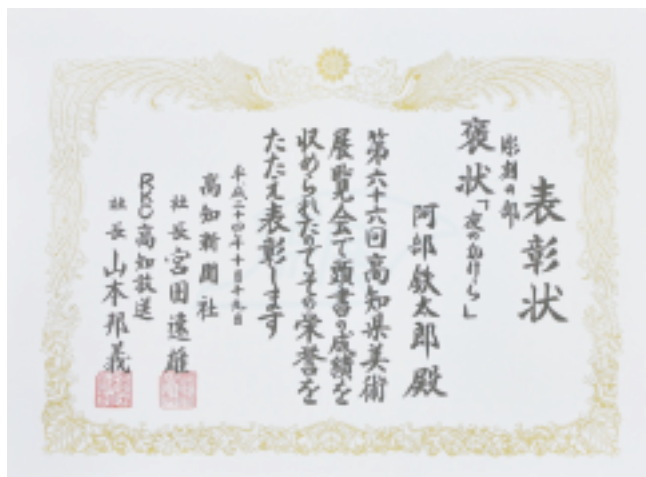 表彰状
彫刻の部
褒状「夜のおけら」
阿部鉄太郎殿
第六十六回高知県美術
展覧会で頭書の成績を
収められたのでその栄誉を
たたえ表彰します
平成二十四年十月十九日
高知新聞社
社長 宮田速雄
RKC高知放送
社長 山本邦義